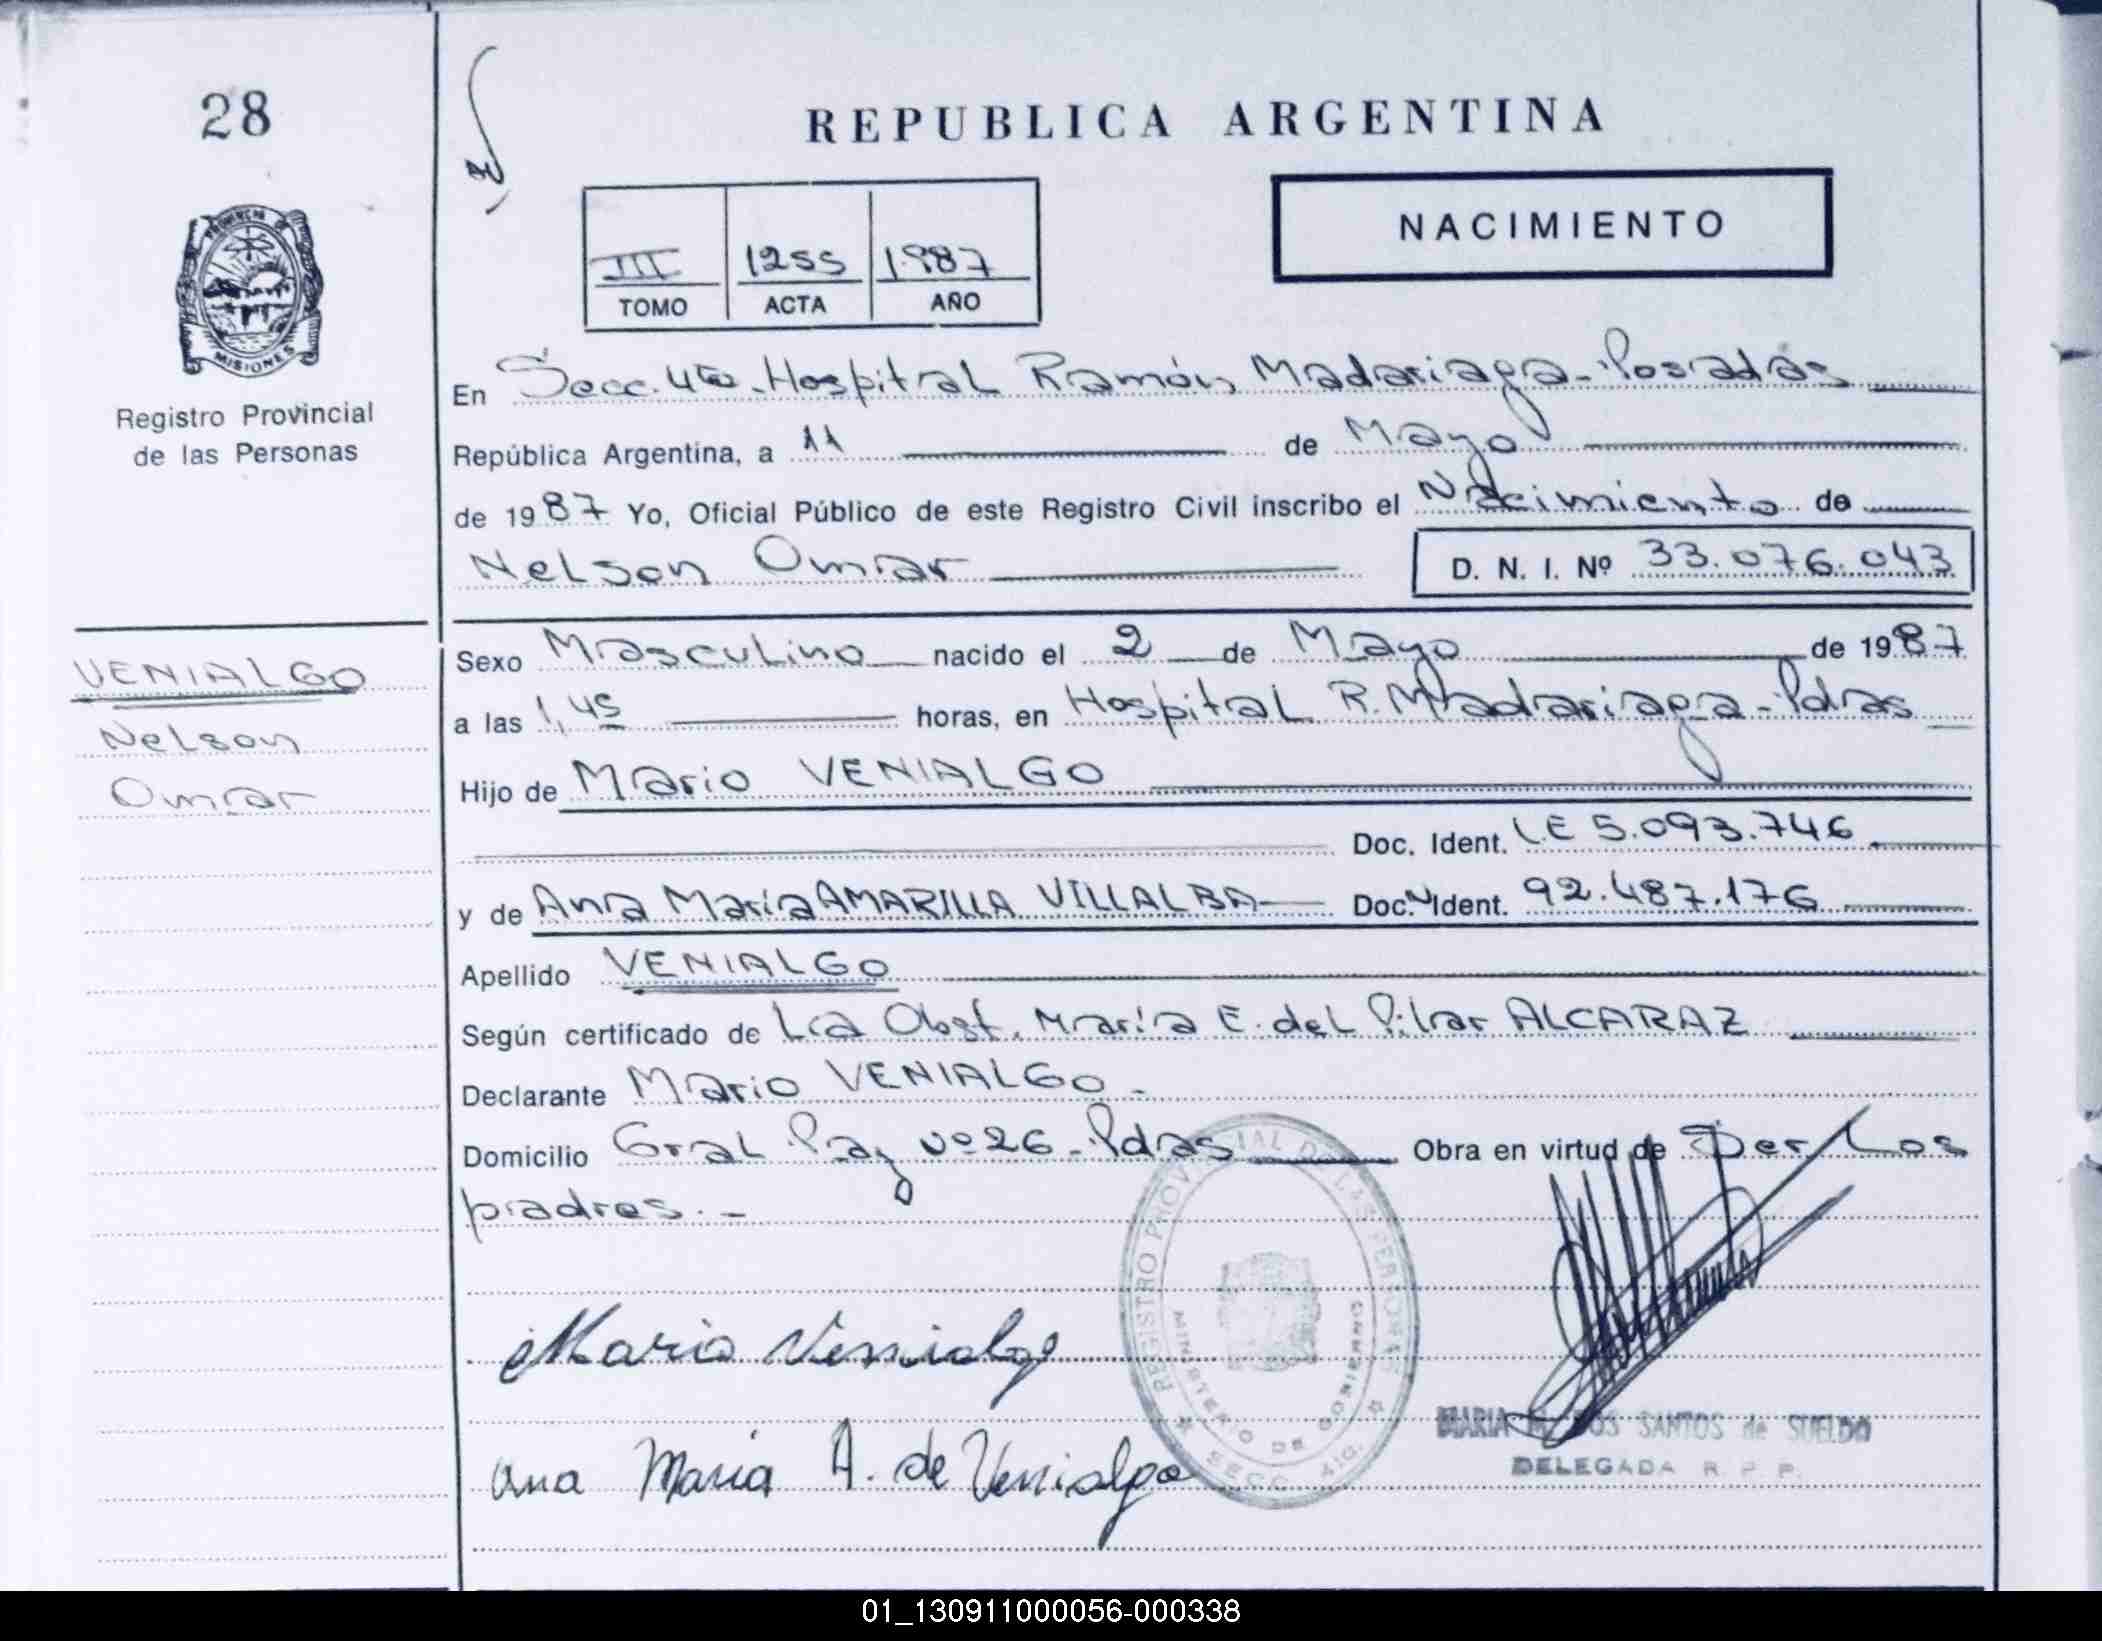 28
REPUBLICA ARGENTINA
NACIMIENTO
III 1255 1987
TOMO ACTA AÑO
PROVINCIA DE
MISIONES
Registro Provincial
de las Personas
En Secc. 4ta. Hospital Ramón Madariaga - Posadas
República Argentina, a 11 de Mayo
de 1987 Yo, Oficial Público de este Registro Civil inscribo el Nacimiento de
Nelson Omar D. N. I. Nº 33.076.043
VENIALGO
Nelson
Omar
Sexo Masculino nacido el 2 de Mayo de 1987
a las 1,45 horas, en Hospital R. Madariaga - Pdas
Hijo de Mario VENIALGO
Doc. Ident. L.E 5.093.746
y de Ana María AMARILLA VILLALBA Doc. Ident. 92.487.176
Apellido VENIALGO
Según certificado de La Obst. María E. del Pilar ALCARAZ
Declarante Mario VENIALGO.-
Domicilio Gral Paz nº 26 - Pdas Obra en virtud de Ser los
padres.-
REGISTRO PROVINCIAL DE LAS PERSONAS
MINISTERIO DE GOBIERNO
SECC. 4ta.
Mario Venialgo
Ana María A. de Venialgo
MARIA DOS SANTOS de SUELDO
DELEGADA R. P. P.
01_130911000056-000338